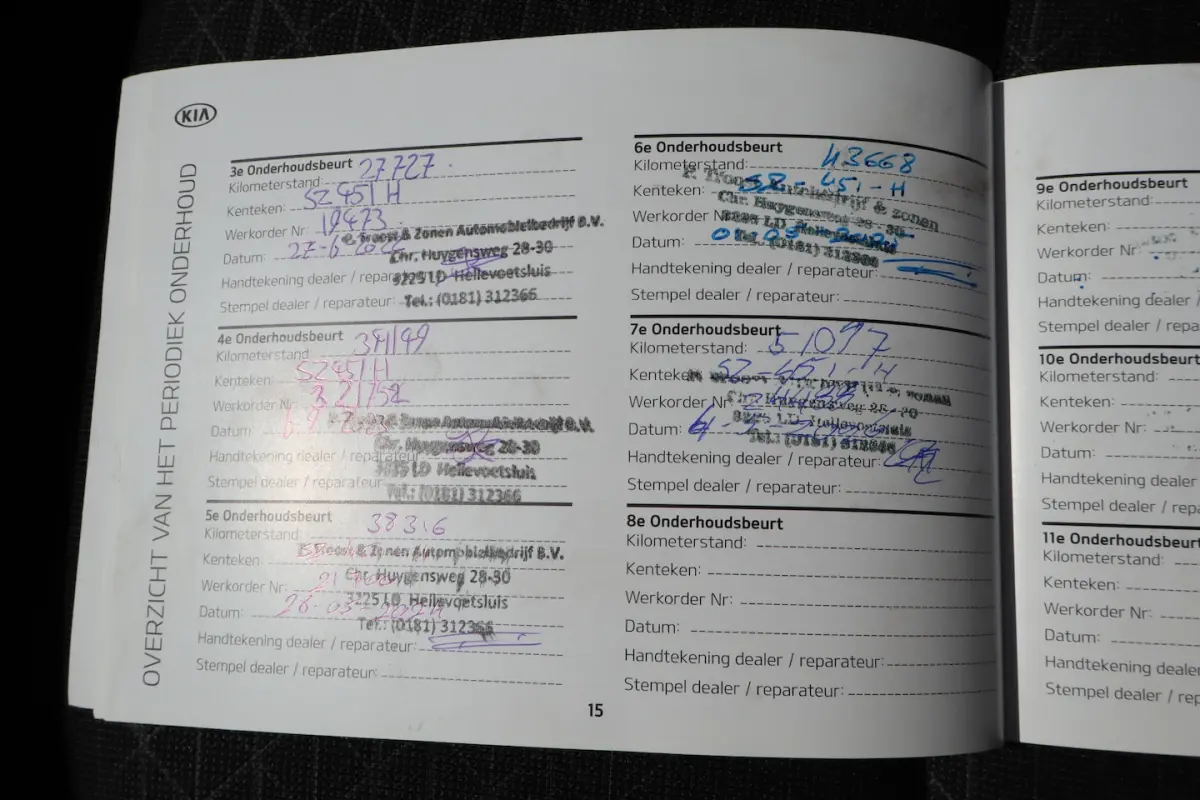 KIA
OVERZICHT VAN HET PERIODIEK ONDERHOUD
3e Onderhoudsbeurt
Kilometerstand: 27727
Kenteken: SZ451H
Werkorder Nr: 19473
Datum: 27-6-
Handtekening dealer / reparateur:
Stempel dealer / reparateur:
Troost & Zonen Automobielbedrijf B.V.
Chr. Huygensweg 28-30
3225 LD Hellevoetsluis
Tel.: (0181) 312366
4e Onderhoudsbeurt
Kilometerstand
Kenteken: SZ451H
Werkorder Nr:
Datum:
Handtekening dealer / reparateur
Stempel dealer / reparateur
Zonen Automobielbedrijf B.V.
Chr. Huygensweg 28-30
3225 LD Hellevoetsluis
Tel.: (0181) 312366
5e Onderhoudsbeurt
Kilometerstand 38316
Kenteken:
Werkorder Nr:
Datum: 26-03-
Handtekening dealer / reparateur:
Stempel dealer / reparateur:
Troost & Zonen Automobielbedrijf B.V.
Chr. Huygensweg 28-30
3225 LD Hellevoetsluis
Tel.: (0181) 312366
15
6e Onderhoudsbeurt
Kilometerstand: 43668
Kenteken: SZ-451-H
Werkorder Nr
Datum:
Handtekening dealer / reparateur:
Stempel dealer / reparateur:
& zonen
Chr. Huygensweg 28-30
3225 LD Hellevoetsluis
Tel. (0181) 312366
7e Onderhoudsbeurt
Kilometerstand: 51097
Kenteken SZ-451-H
Werkorder Nr:
Datum:
Handtekening dealer / reparateur:
Stempel dealer / reparateur:
Chr. Huygensweg 28-30
3225 LD Hellevoetsluis
Tel.: (0181) 312366
8e Onderhoudsbeurt
Kilometerstand:
Kenteken:
Werkorder Nr:
Datum:
Handtekening dealer / reparateur:
Stempel dealer / reparateur:
9e Onderhoudsbeurt
Kilometerstand:
Kenteken:
Werkorder Nr
Datum:
Handtekening dealer /
Stempel dealer / repa
10e Onderhoudsbeurt
Kilometerstand:
Kenteken:
Werkorder Nr:
Datum:
Handtekening dealer
Stempel dealer / repa
11e Onderhoudsbeurt
Kilometerstand:
Kenteken:
Werkorder Nr:
Datum:
Handtekening dealer
Stempel dealer / rep